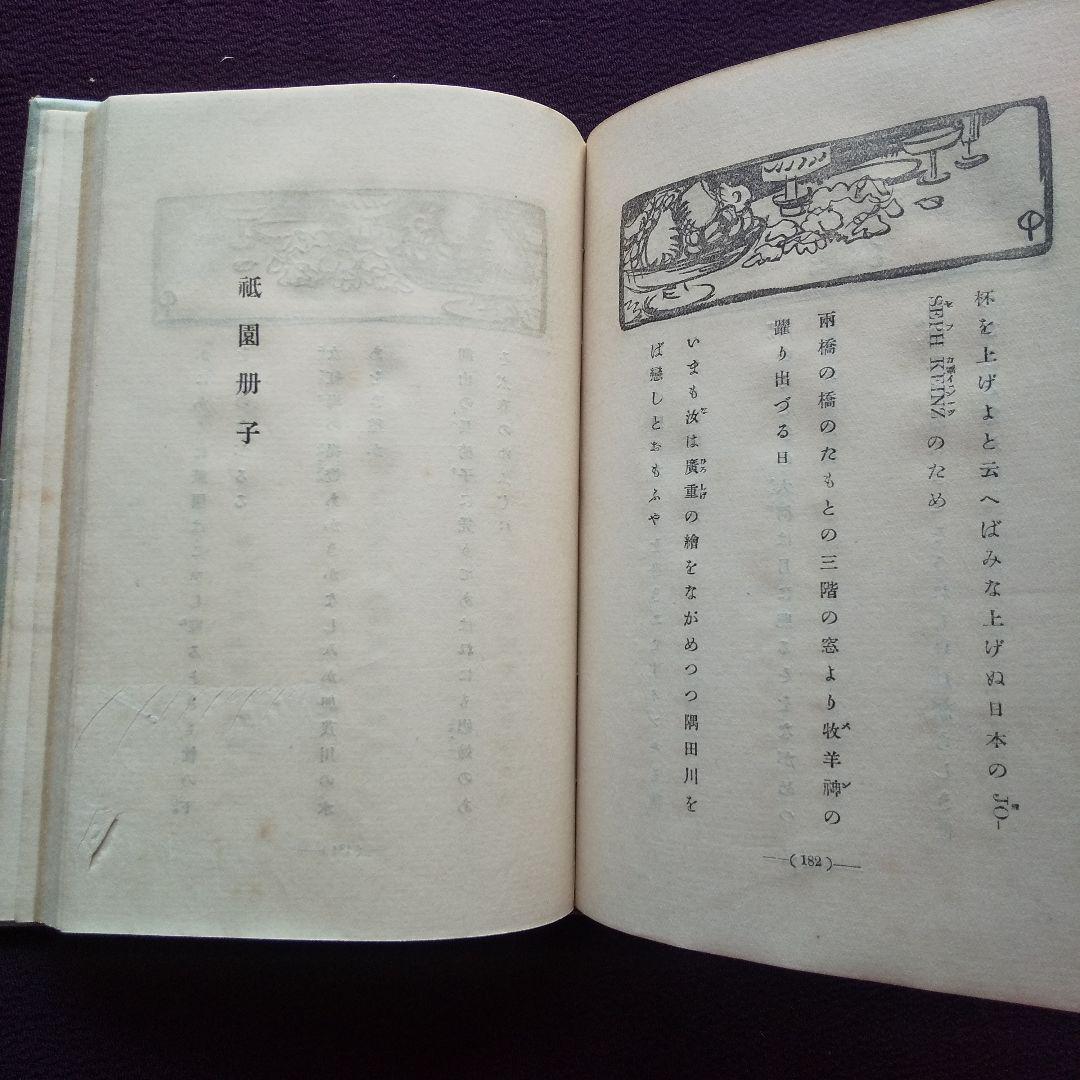 杯を上げよと云へばみな上げぬ日本のJO-
SEPH KEINZのため
兩橋の橋のたもとの三階の窓より牧羊神の
躍り出づる日
いまも汝は廣重の繪をながめつつ隅田川を
ば戀しとおもふや
(182)
祇園册子